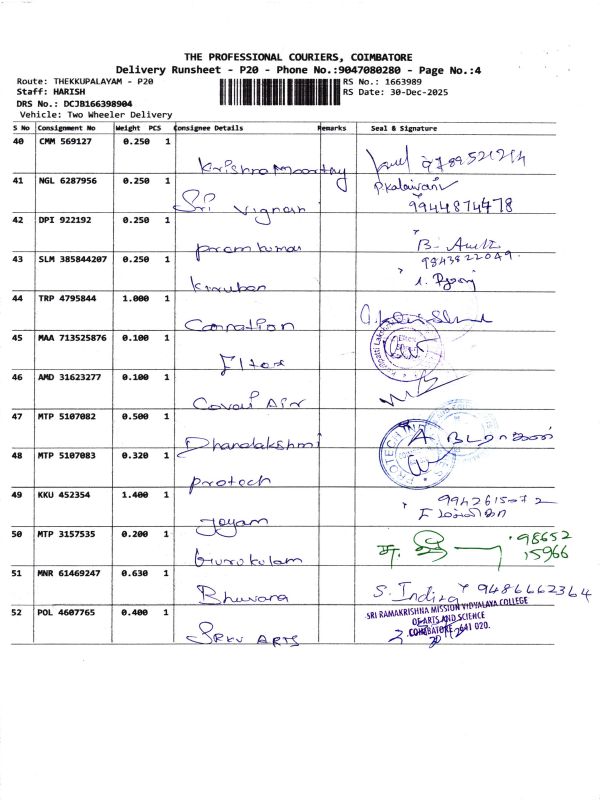 THE PROFESSIONAL COURIERS, COIMBATORE
Delivery Runsheet - P20 - Phone No.:9047080280 - Page No.:4
Route: THEKKUPALAYAM - P20 RS No.: 1663989
Staff: HARISH RS Date: 30-Dec-2025
DRS No.: DCJB166398904
Vehicle: Two Wheeler Delivery
S No Consignment No Weight PCS Consignee Details Remarks Seal & Signature
40 CMM 569127 0.250 1
Krishna Moorthy
41 NGL 6287956 0.250 1 P.Kalaivani
Sri Vignesh 9944874478
42 DPI 922192 0.250 1
Premkumar
43 SLM 385844207 0.250 1 9843822049
Kiruban
44 TRP 4795844 1.000 1
Carnation
45 MAA 713525876 0.100 1
Eltex
46 AMD 31623277 0.100 1
Covai Air
47 MTP 5107082 0.500 1
Dhanalakshmi
48 MTP 5107083 0.320 1
Protech
49 KKU 452354 1.400 1
Jeyam
50 MTP 3157535 0.200 1 98652
Gurukulam 15966
51 MNR 61469247 0.630 1 S. Indira 9486662364
Bhuvana
52 POL 4607765 0.400 1 SRI RAMAKRISHNA MISSION VIDYALAYA COLLEGE
OF ARTS AND SCIENCE
SRKV ARTS COIMBATORE - 641 020.